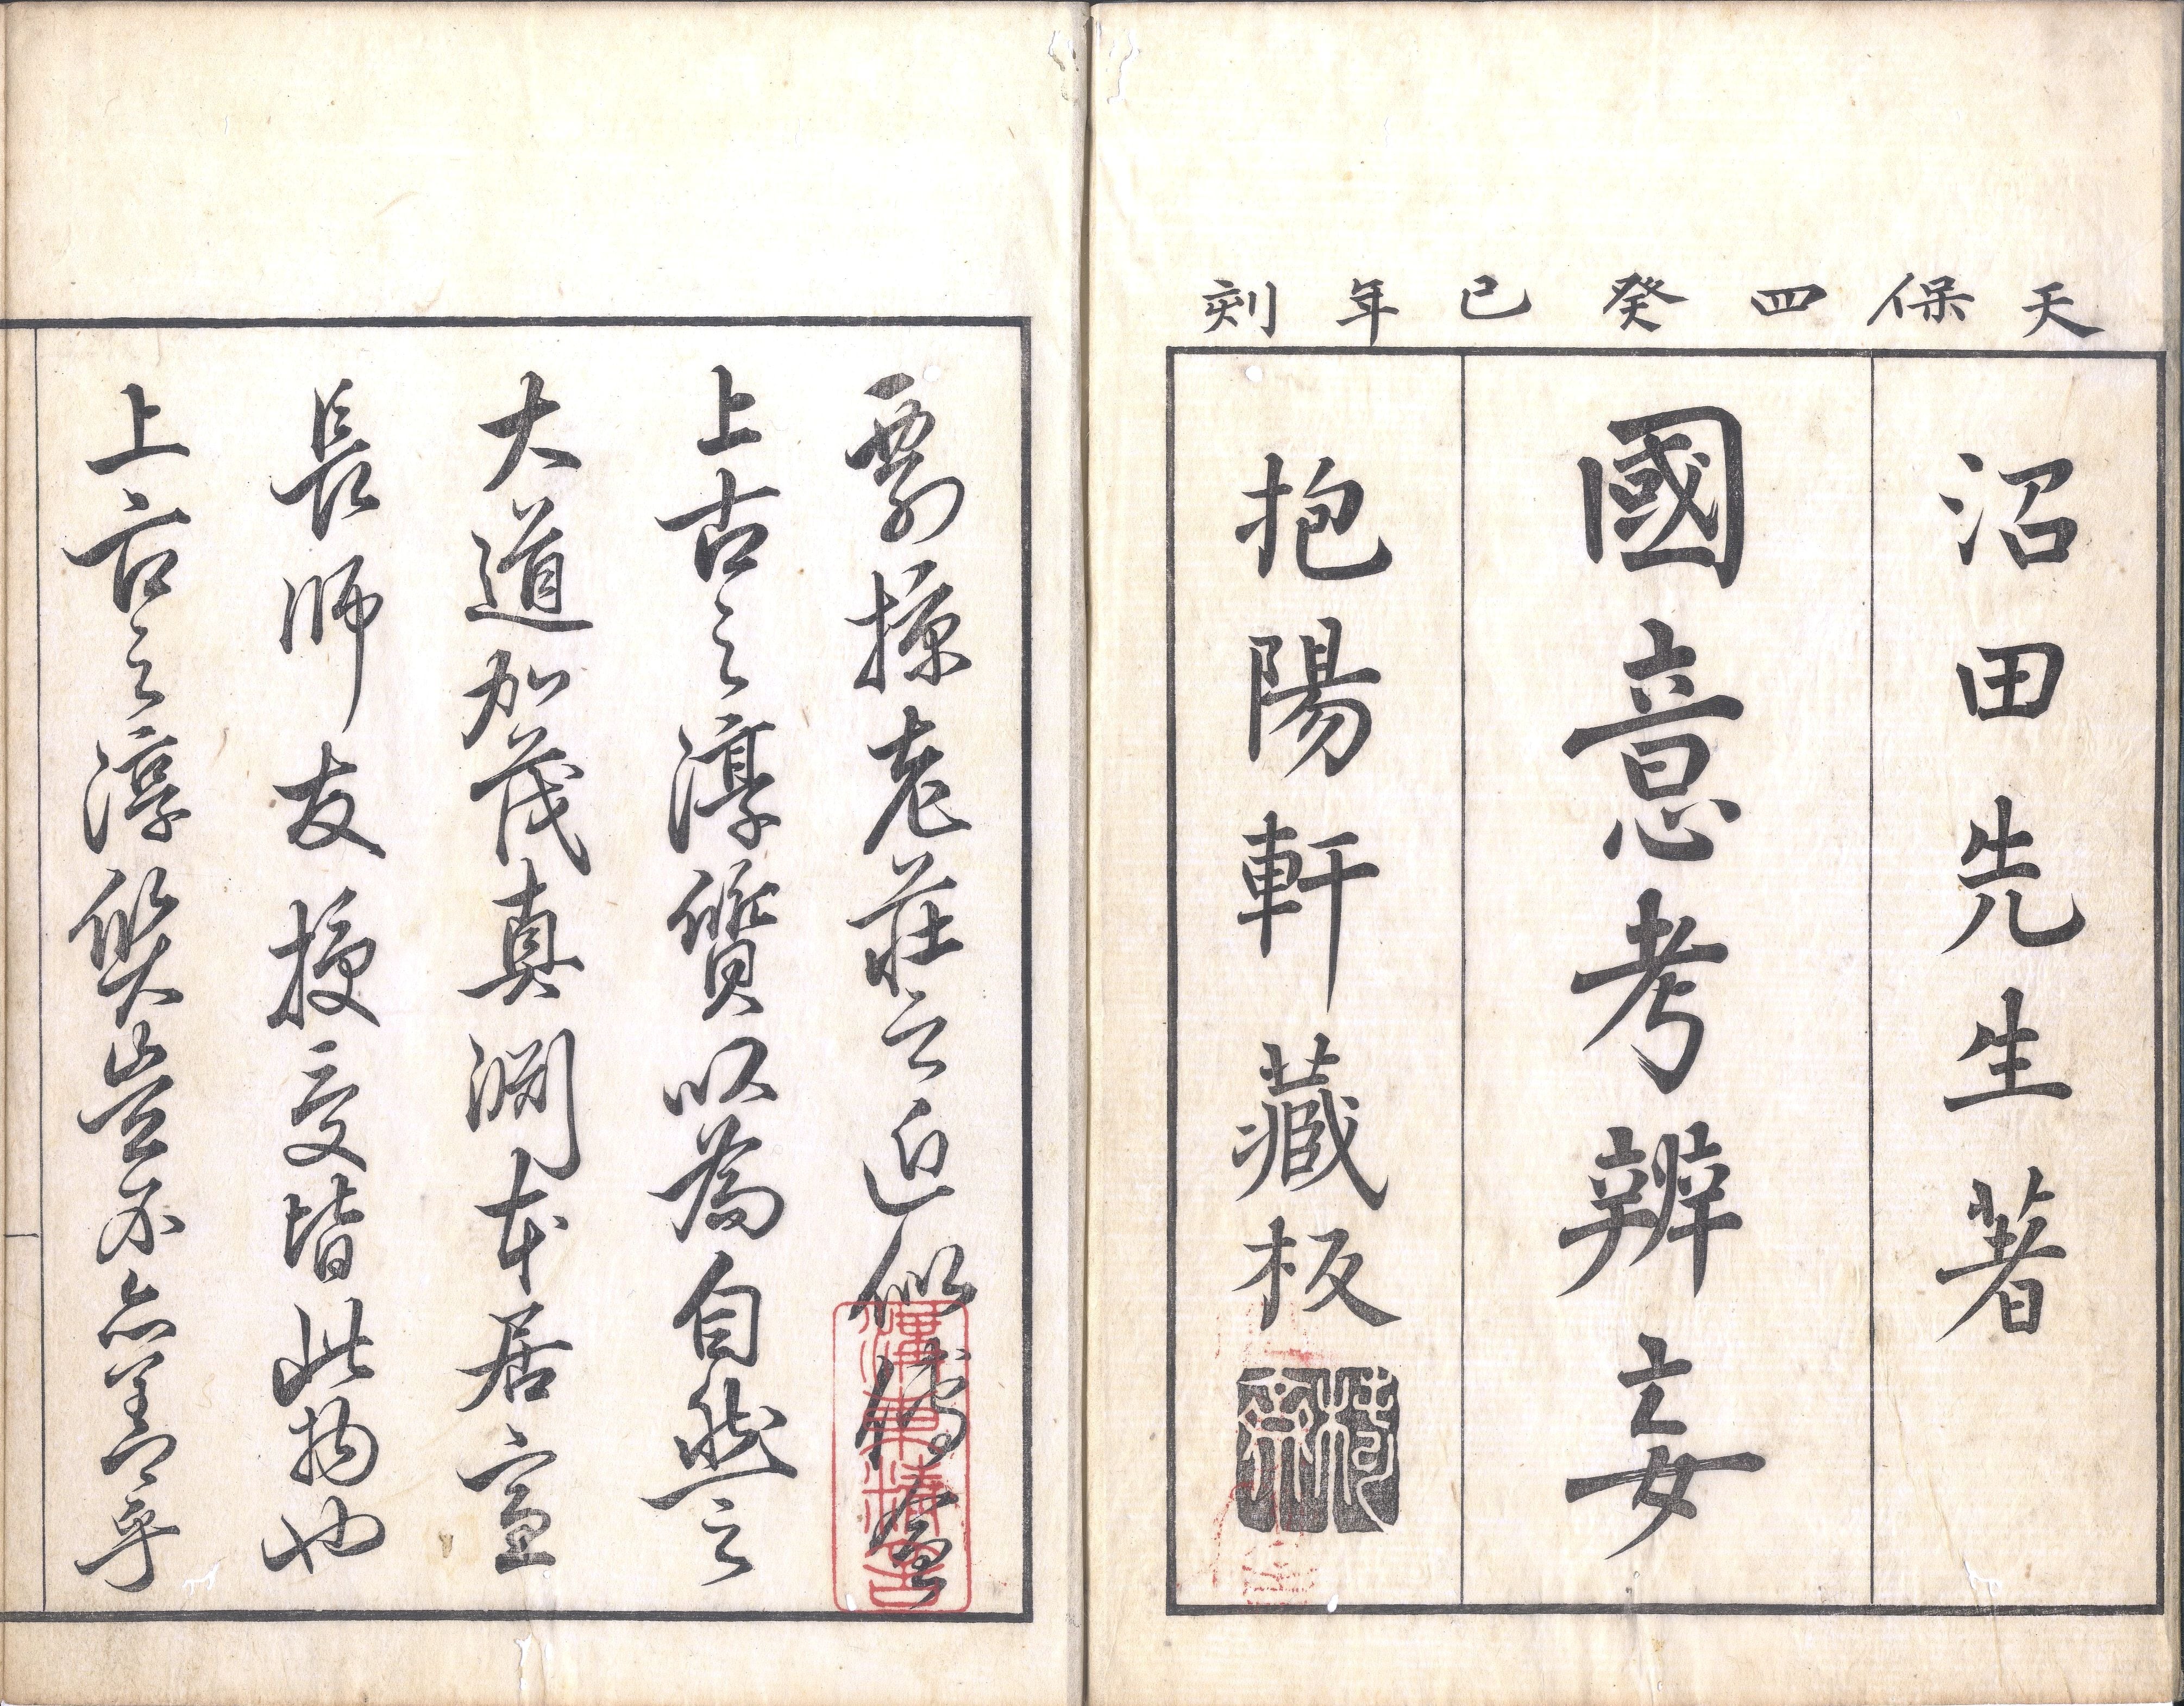 天保四癸巳年刻
沼田先生著
國意考辨妄
抱陽軒藏板
剽掠老莊之近似傅會
上古之淳質以為自然之
大道加茂真淵本居宣
長師友授受皆此物也
上古之淳質豈不亦善乎